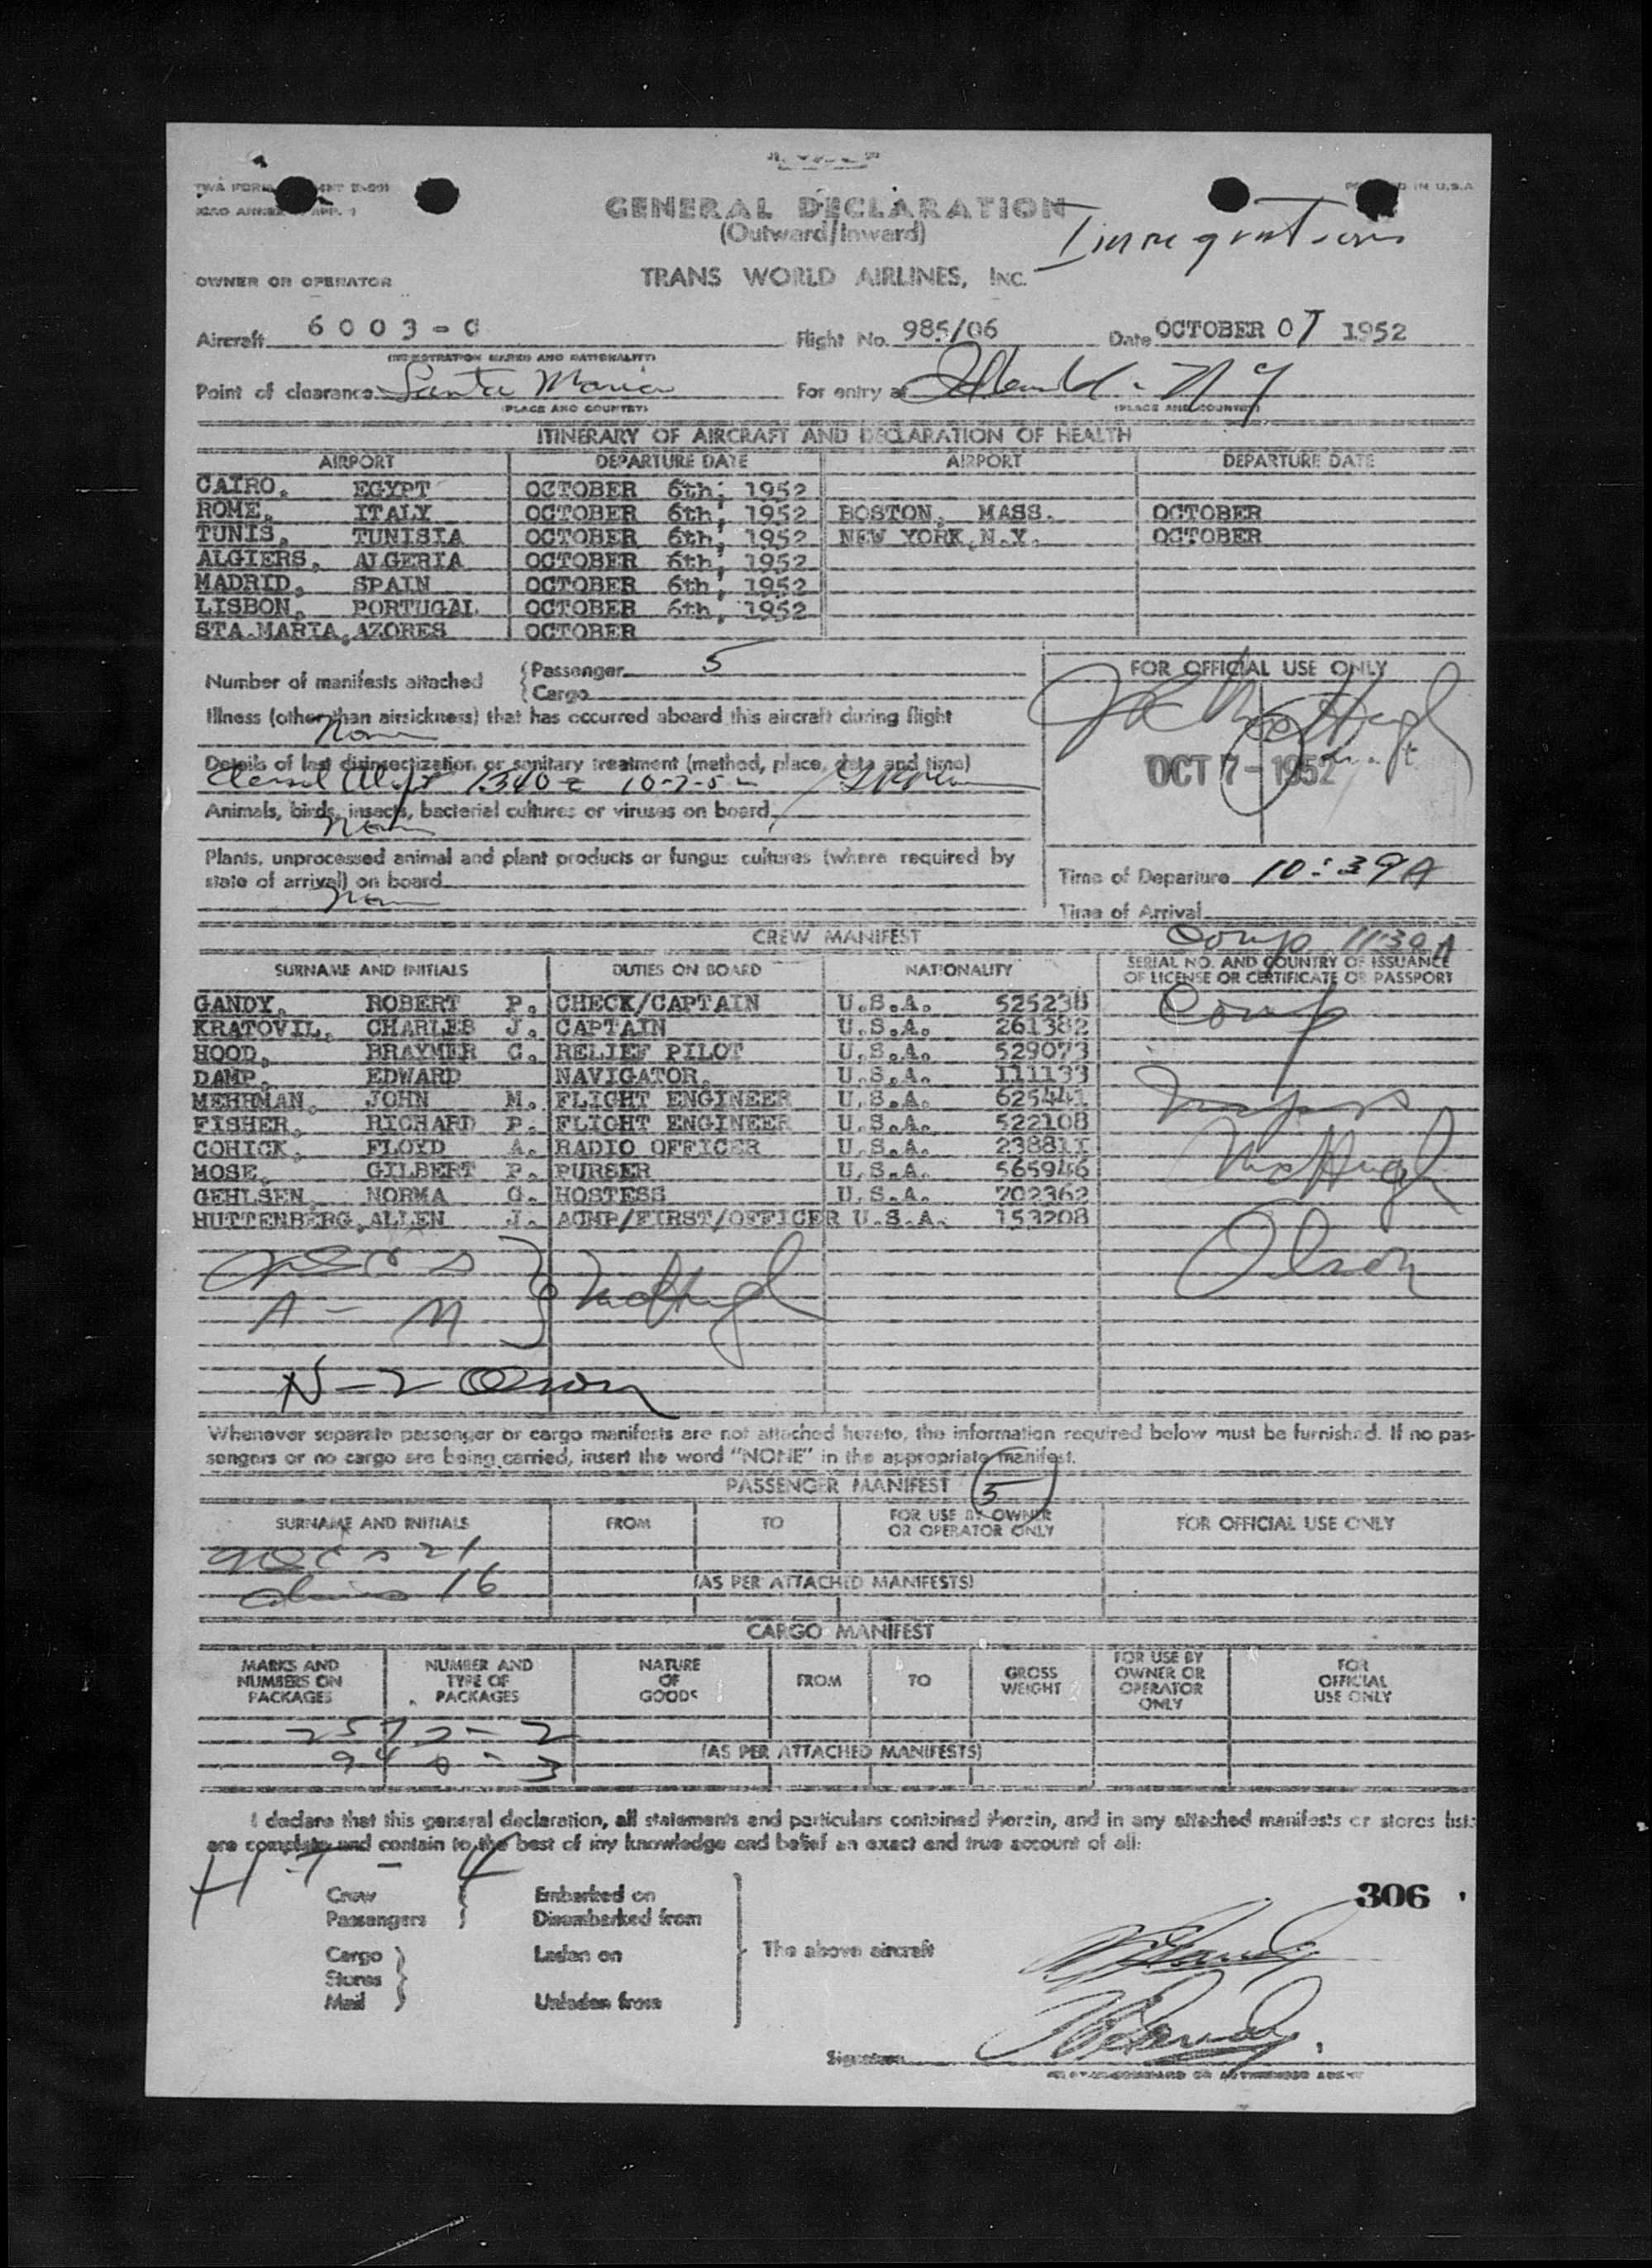 PRINTED IN U.S.A
GENERAL DECLARATION
(Outward/Inward)
Immigration
OWNER OR OPERATOR
TRANS WORLD AIRLINES, INC.
Aircraft 6003-C Flight No. 985/06 Date OCTOBER 07 1952
(REGISTRATION MARKS AND NATIONALITY)
Point of clearance Santa Maria For entry at N Y
(PLACE AND COUNTRY) (PLACE AND COUNTRY)
ITINERARY OF AIRCRAFT AND DECLARATION OF HEALTH
AIRPORT DEPARTURE DATE AIRPORT DEPARTURE DATE
CAIRO, EGYPT OCTOBER 6th, 1952
ROME, ITALY OCTOBER 6th, 1952 BOSTON, MASS. OCTOBER
TUNIS, TUNISIA OCTOBER 6th, 1952 NEW YORK, N.Y. OCTOBER
ALGIERS, ALGERIA OCTOBER 6th, 1952
MADRID, SPAIN OCTOBER 6th, 1952
LISBON, PORTUGAL OCTOBER 6th, 1952
STA.MARIA, AZORES OCTOBER
Number of manifests attached
Passenger 5
Cargo
FOR OFFICIAL USE ONLY
Illness (other than airsickness) that has occurred aboard this aircraft during flight
None
Details of last disinsectization or sanitary treatment (method, place, date and time)
1340z 10-7-52
OCT 7 - 1952
Animals, birds, insects, bacterial cultures or viruses on board
None
Plants, unprocessed animal and plant products or fungus cultures (where required by
state of arrival) on board
None
Time of Departure 10:39A
Time of Arrival
Comp 11:30 A
CREW MANIFEST
SURNAME AND INITIALS DUTIES ON BOARD NATIONALITY SERIAL NO. AND COUNTRY OF ISSUANCE
OF LICENSE OR CERTIFICATE OR PASSPORT
GANDY, ROBERT P. CHECK/CAPTAIN U.S.A. 525238
KRATOVIL, CHARLES J. CAPTAIN U.S.A. 261382
HOOD, BRAYMER C. RELIEF PILOT U.S.A. 529073
DAMP, EDWARD NAVIGATOR, U.S.A. 111133
MEHRMAN, JOHN M. FLIGHT ENGINEER U.S.A. 625441
FISHER, RICHARD P. FLIGHT ENGINEER U.S.A. 522108
COHICK, FLOYD A. RADIO OFFICER U.S.A. 238811
MOSE, GILBERT P. PURSER U.S.A. 565946
GEHLSEN, NORMA G. HOSTESS U.S.A. 702362
HUTTENBERG, ALLEN J. ACMP/FIRST/OFFICER U.S.A. 153208
Comp
McHugh
Olson
A - M McHugh
N - Z Olson
Whenever separate passenger or cargo manifests are not attached hereto, the information required below must be furnished. If no pas-
sengers or no cargo are being carried, insert the word "NONE" in the appropriate manifest.
PASSENGER MANIFEST 5
SURNAME AND INITIALS FROM TO FOR USE BY OWNER
OR OPERATOR ONLY FOR OFFICIAL USE ONLY
21
16
(AS PER ATTACHED MANIFESTS)
CARGO MANIFEST
MARKS AND
NUMBERS ON
PACKAGES
NUMBER AND
TYPE OF
PACKAGES
NATURE
OF
GOODS
FROM
TO
GROSS
WEIGHT
FOR USE BY
OWNER OR
OPERATOR
ONLY
FOR
OFFICIAL
USE ONLY
2572 - 2
940 - 3
(AS PER ATTACHED MANIFESTS)
I declare that this general declaration, all statements and particulars contained therein, and in any attached manifests or stores lists
are complete and contain to the best of my knowledge and belief an exact and true account of all:
Crew
Passengers
Embarked on
Disembarked from
306
Cargo
Stores
Mail
Laden on
Unladen from
The above aircraft
Signature